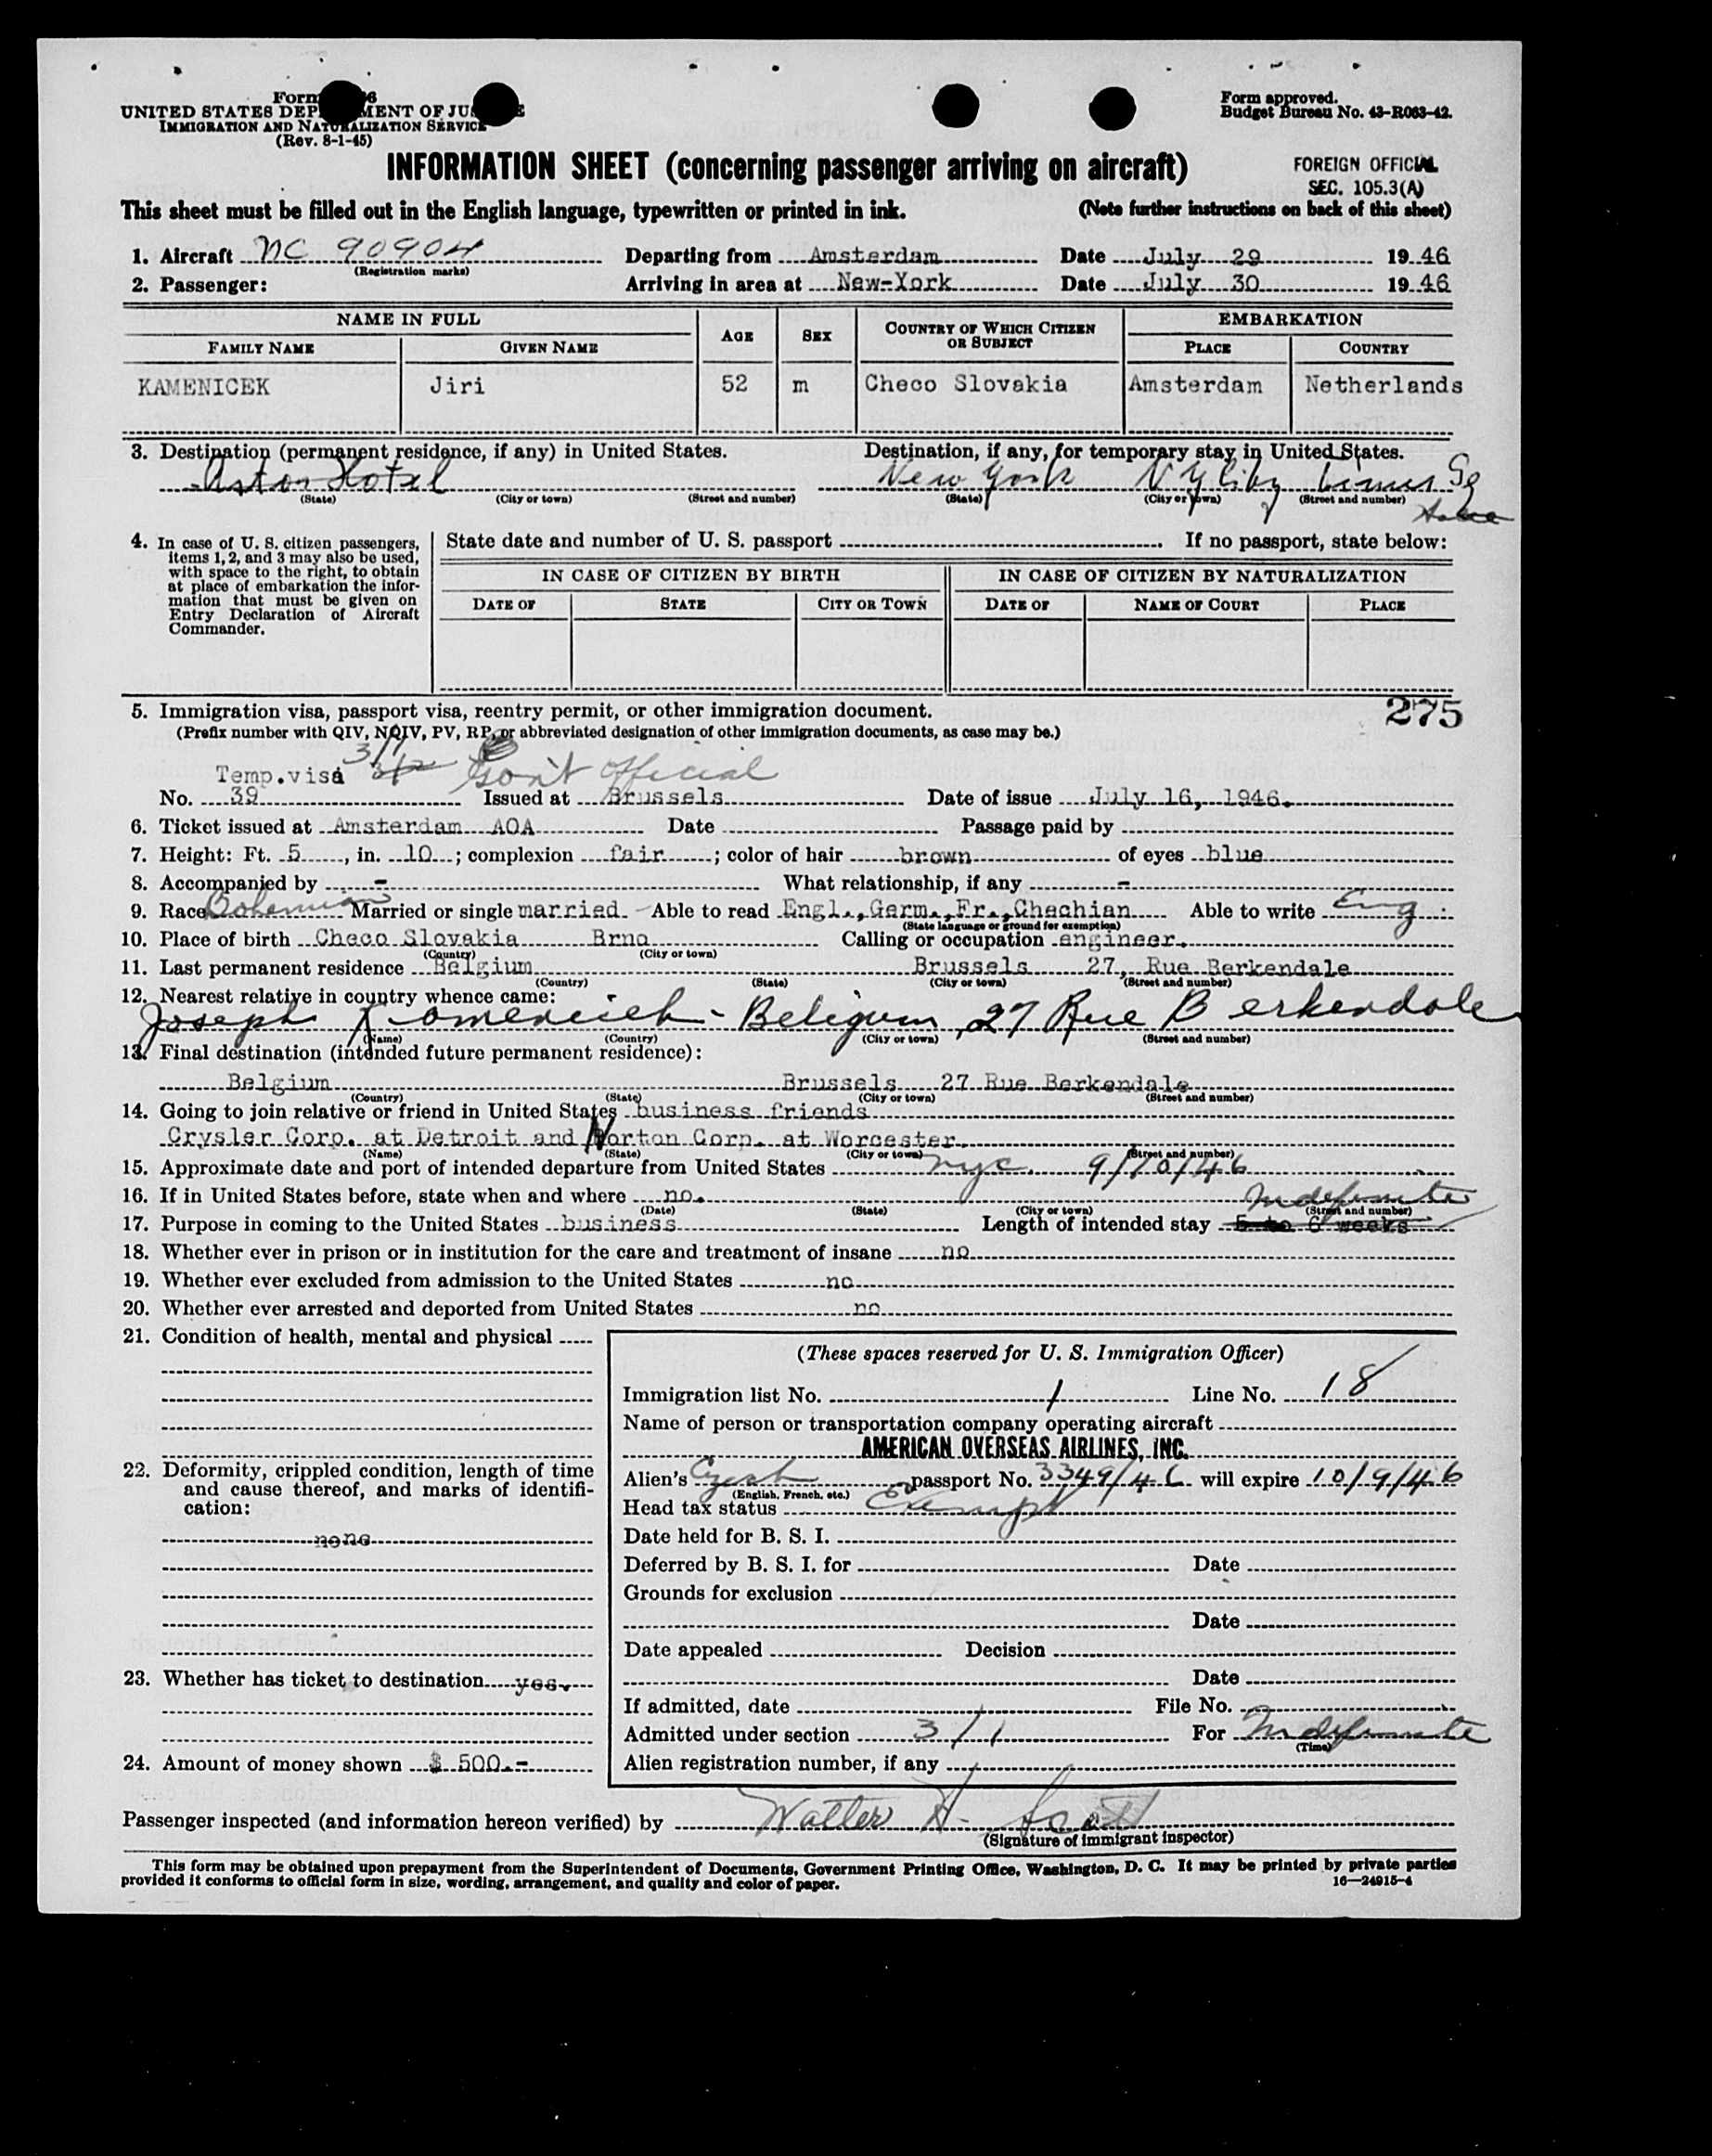 Form
UNITED STATES DEP MENT OF JUS E
IMMIGRATION AND NATURALIZATION SERVICE
(Rev. 8-1-45)
Form approved.
Budget Bureau No. 43-R063-42.
INFORMATION SHEET (concerning passenger arriving on aircraft)
FOREIGN OFFICIAL
SEC. 105.3(A)
This sheet must be filled out in the English language, typewritten or printed in ink.
(Note further instructions on back of this sheet)
1. Aircraft NC 90904 Departing from Amsterdam Date July 29 1946
(Registration marks)
2. Passenger: Arriving in area at New-York Date July 30 1946
NAME IN FULL AGE SEX COUNTRY OF WHICH CITIZEN OR SUBJECT EMBARKATION
FAMILY NAME GIVEN NAME PLACE COUNTRY
KAMENICEK Jiri 52 m Checo Slovakia Amsterdam Netherlands
3. Destination (permanent residence, if any) in United States. Destination, if any, for temporary stay in United States.
Astor Hotel New York N Y City Times Sq
(State) (City or town) (Street and number) (State) (City or town) (Street and number)
4. In case of U. S. citizen passengers, items 1, 2, and 3 may also be used, with space to the right, to obtain at place of embarkation the information that must be given on Entry Declaration of Aircraft Commander.
State date and number of U. S. passport . If no passport, state below:
IN CASE OF CITIZEN BY BIRTH IN CASE OF CITIZEN BY NATURALIZATION
DATE OF STATE CITY OR TOWN DATE OF NAME OF COURT PLACE
275
5. Immigration visa, passport visa, reentry permit, or other immigration document.
(Prefix number with QIV, NQIV, PV, RP, or abbreviated designation of other immigration documents, as case may be.)
3/1
Temp.visa 3/2 Gov't Official
No. 39 Issued at Brussels Date of issue July 16, 1946.
6. Ticket issued at Amsterdam AOA Date Passage paid by
7. Height: Ft. 5, in. 10; complexion fair; color of hair brown of eyes blue
8. Accompanied by - What relationship, if any -
9. Race Bohemian Married or single married. Able to read Engl., Germ., Fr., Chechian Able to write Eng
(State language or ground for exemption)
10. Place of birth Checo Slovakia Brno Calling or occupation engineer.
(Country) (City or town)
11. Last permanent residence Belgium Brussels 27, Rue Berkendale
(Country) (State) (City or town) (Street and number)
12. Nearest relative in country whence came:
Joseph Kamenicek - Beligum, 27 Rue Berkendale
(Name) (Country) (City or town) (Street and number)
13. Final destination (intended future permanent residence):
Belgium Brussels 27 Rue Berkendale
(Country) (State) (City or town) (Street and number)
14. Going to join relative or friend in United States business friends
Crysler Corp. at Detroit and Norton Corp. at Worcester.
(Name) (State) (City or town) (Street and number)
15. Approximate date and port of intended departure from United States nyc. 9/10/46
16. If in United States before, state when and where no. Indefinite
(Date) (State) (City or town) (Street and number)
17. Purpose in coming to the United States business Length of intended stay 5 to 6 weeks
18. Whether ever in prison or in institution for the care and treatment of insane no
19. Whether ever excluded from admission to the United States no
20. Whether ever arrested and deported from United States no
21. Condition of health, mental and physical
(These spaces reserved for U. S. Immigration Officer)
Immigration list No. 1 Line No. 18
Name of person or transportation company operating aircraft
AMERICAN OVERSEAS AIRLINES, INC.
22. Deformity, crippled condition, length of time and cause thereof, and marks of identification:
none
Alien's Czech passport No. 3349/46 will expire 10/9/46
(English, French, etc.)
Head tax status Exempt
Date held for B. S. I.
Deferred by B. S. I. for Date
Grounds for exclusion
Date
Date appealed Decision
23. Whether has ticket to destination yes.
Date
If admitted, date File No.
Admitted under section 3/1 For Indefinite
(Time)
24. Amount of money shown $ 500.-
Alien registration number, if any
Passenger inspected (and information hereon verified) by Walter H. Scott
(Signature of immigrant inspector)
This form may be obtained upon prepayment from the Superintendent of Documents, Government Printing Office, Washington, D. C. It may be printed by private parties
provided it conforms to official form in size, wording, arrangement, and quality and color of paper.
16—24915-4